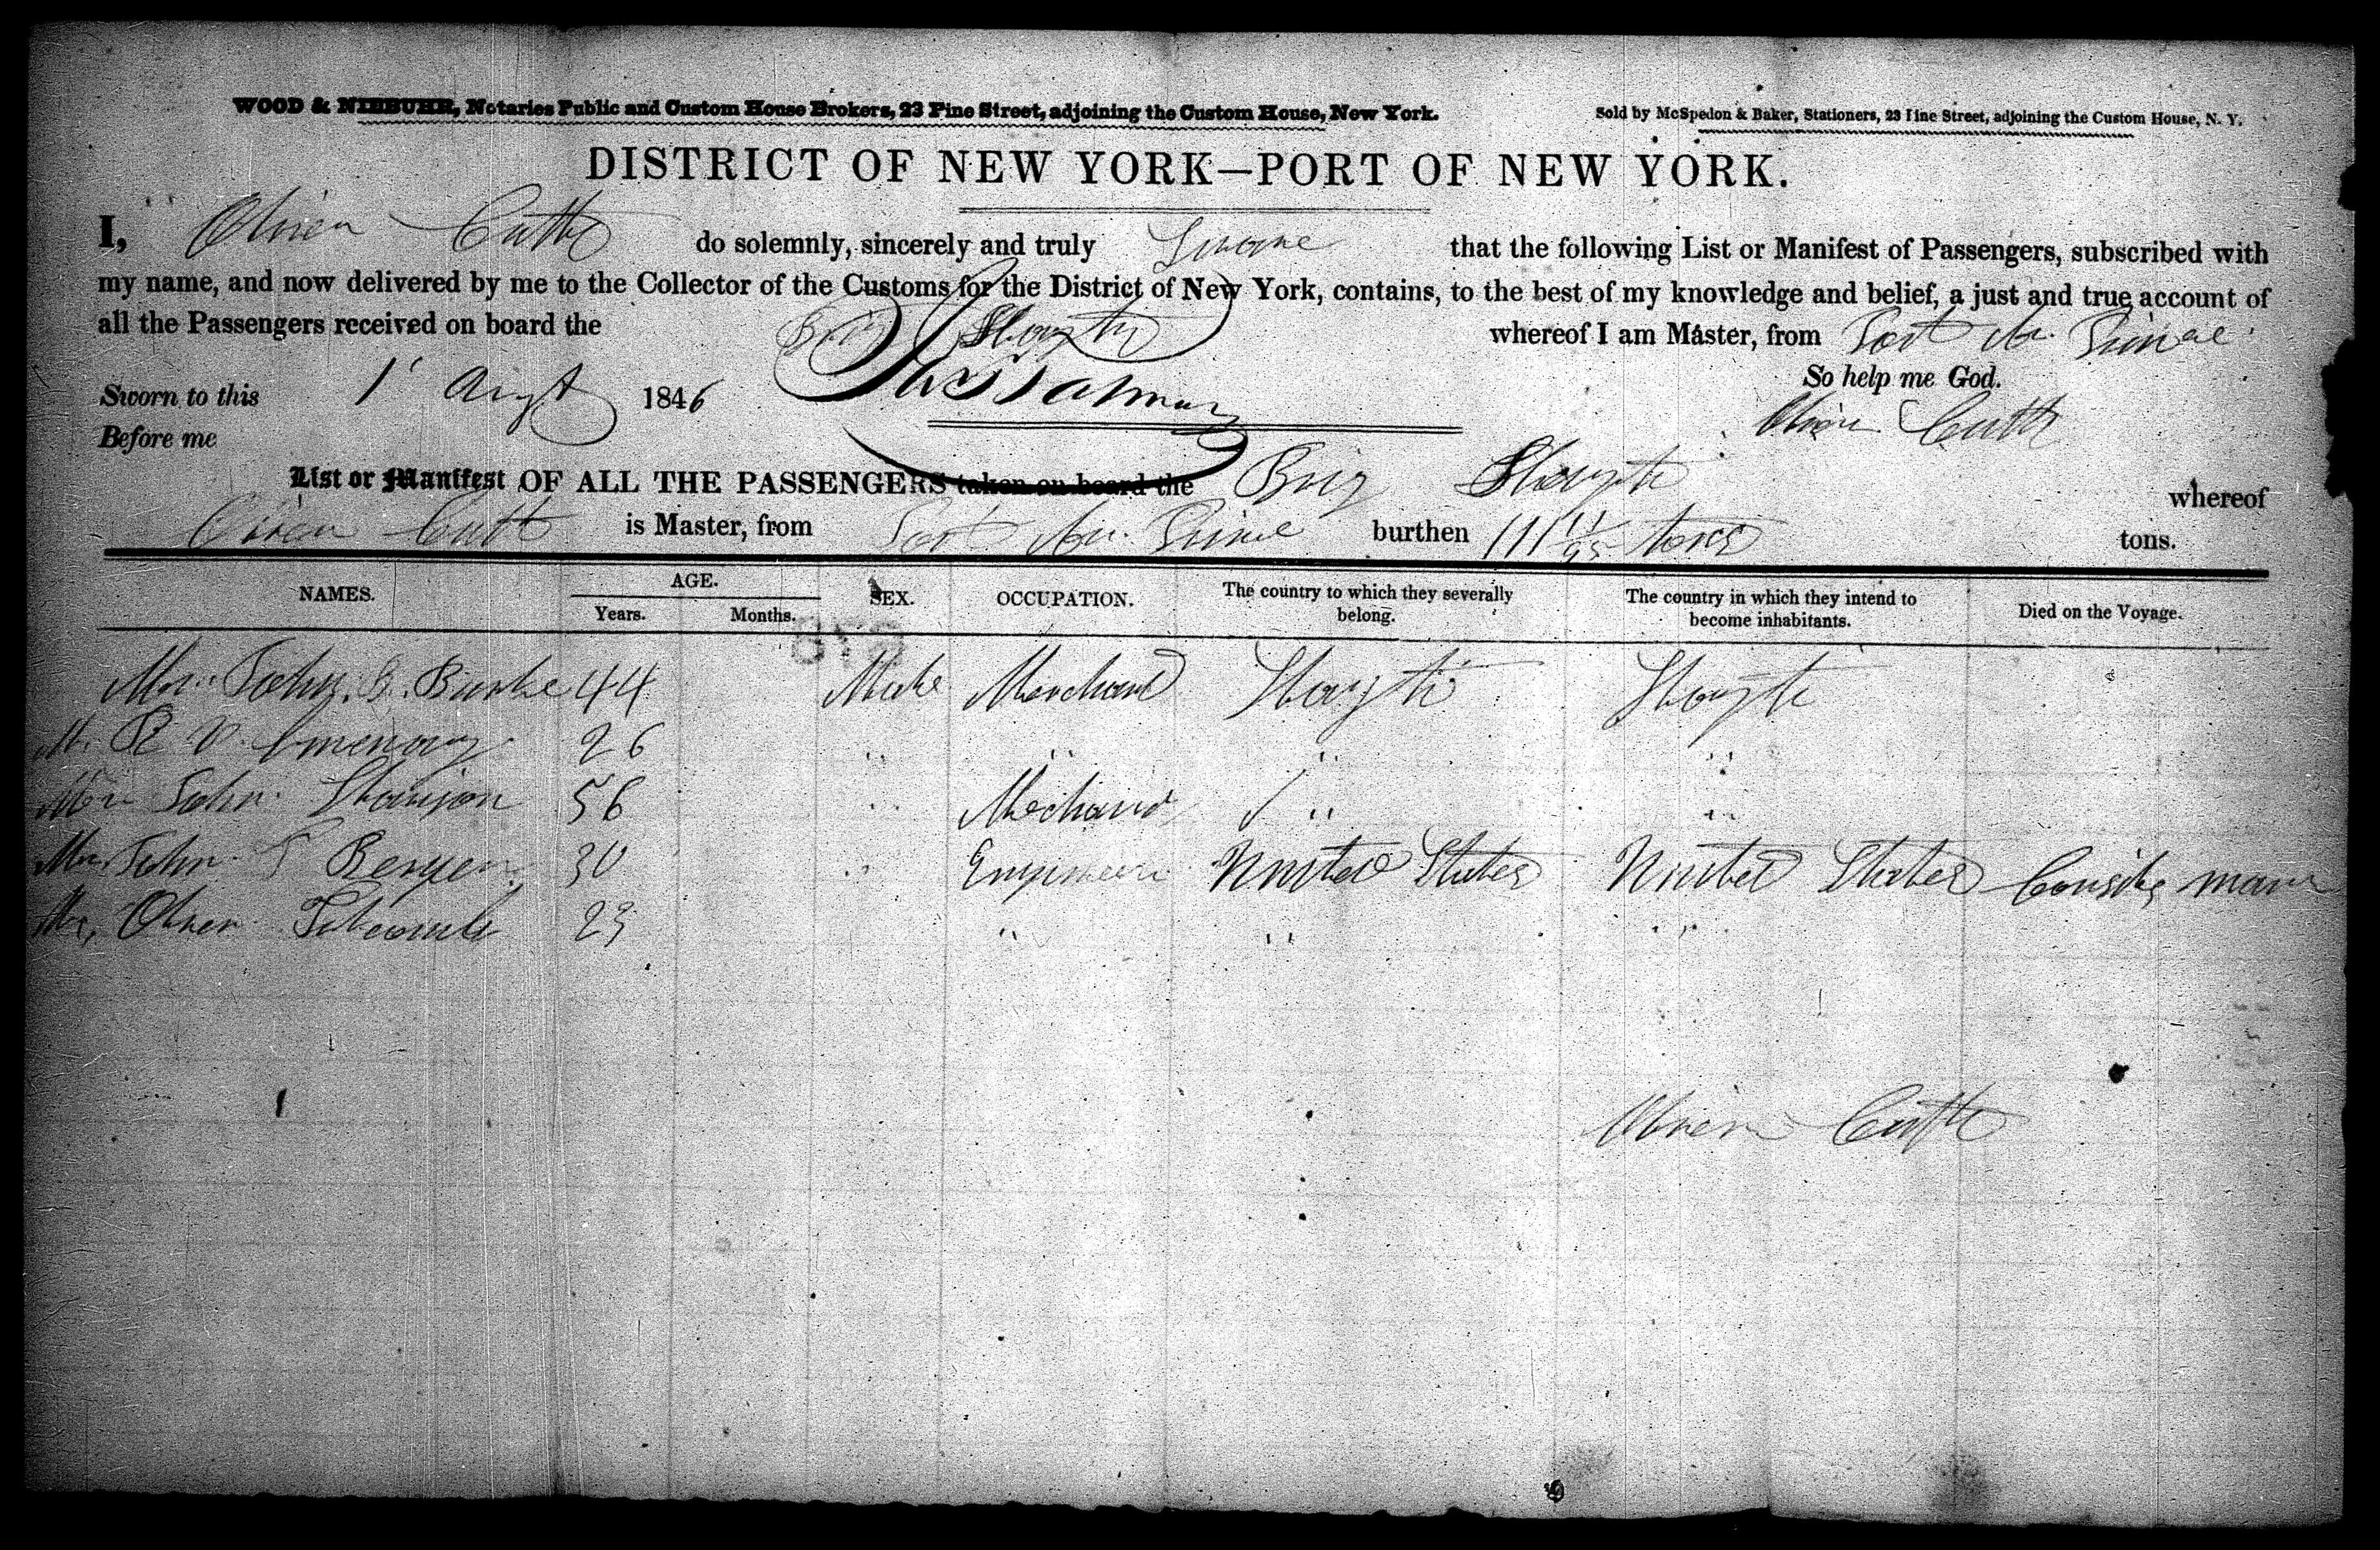 WOOD & NIEBUHR, Notaries Public and Custom House Brokers, 23 Pine Street, adjoining the Custom House, New York.
Sold by McSpedon & Baker, Stationers, 23 Pine Street, adjoining the Custom House, N. Y.
DISTRICT OF NEW YORK—PORT OF NEW YORK.
I, Oliver Cutts do solemnly, sincerely and truly Sware that the following List or Manifest of Passengers, subscribed with
my name, and now delivered by me to the Collector of the Customs for the District of New York, contains, to the best of my knowledge and belief, a just and true account of
all the Passengers received on board the Brig Hayti whereof I am Master, from Port Au Prince
So help me God.
Sworn to this 1 Augt 1846
Oliver Cutts
Before me
List or Manifest OF ALL THE PASSENGERS taken on board the Brig Hayti whereof
Oliver Cutts is Master, from Port Au Prince burthen 111 11/95 tons tons.
NAMES. AGE. Years. Months. SEX. OCCUPATION. The country to which they severally belong. The country in which they intend to become inhabitants. Died on the Voyage.
Mr. John B. Burke 44 Male Merchant Hayti Hayti
Mr. R V 26 " " " "
Mr John Harrison 56 " Mechanic " "
Mr. John T Bergen 30 " Engineer United States United States
Mr. Oliver Titcomb 23 " " "
Oliver Cutts